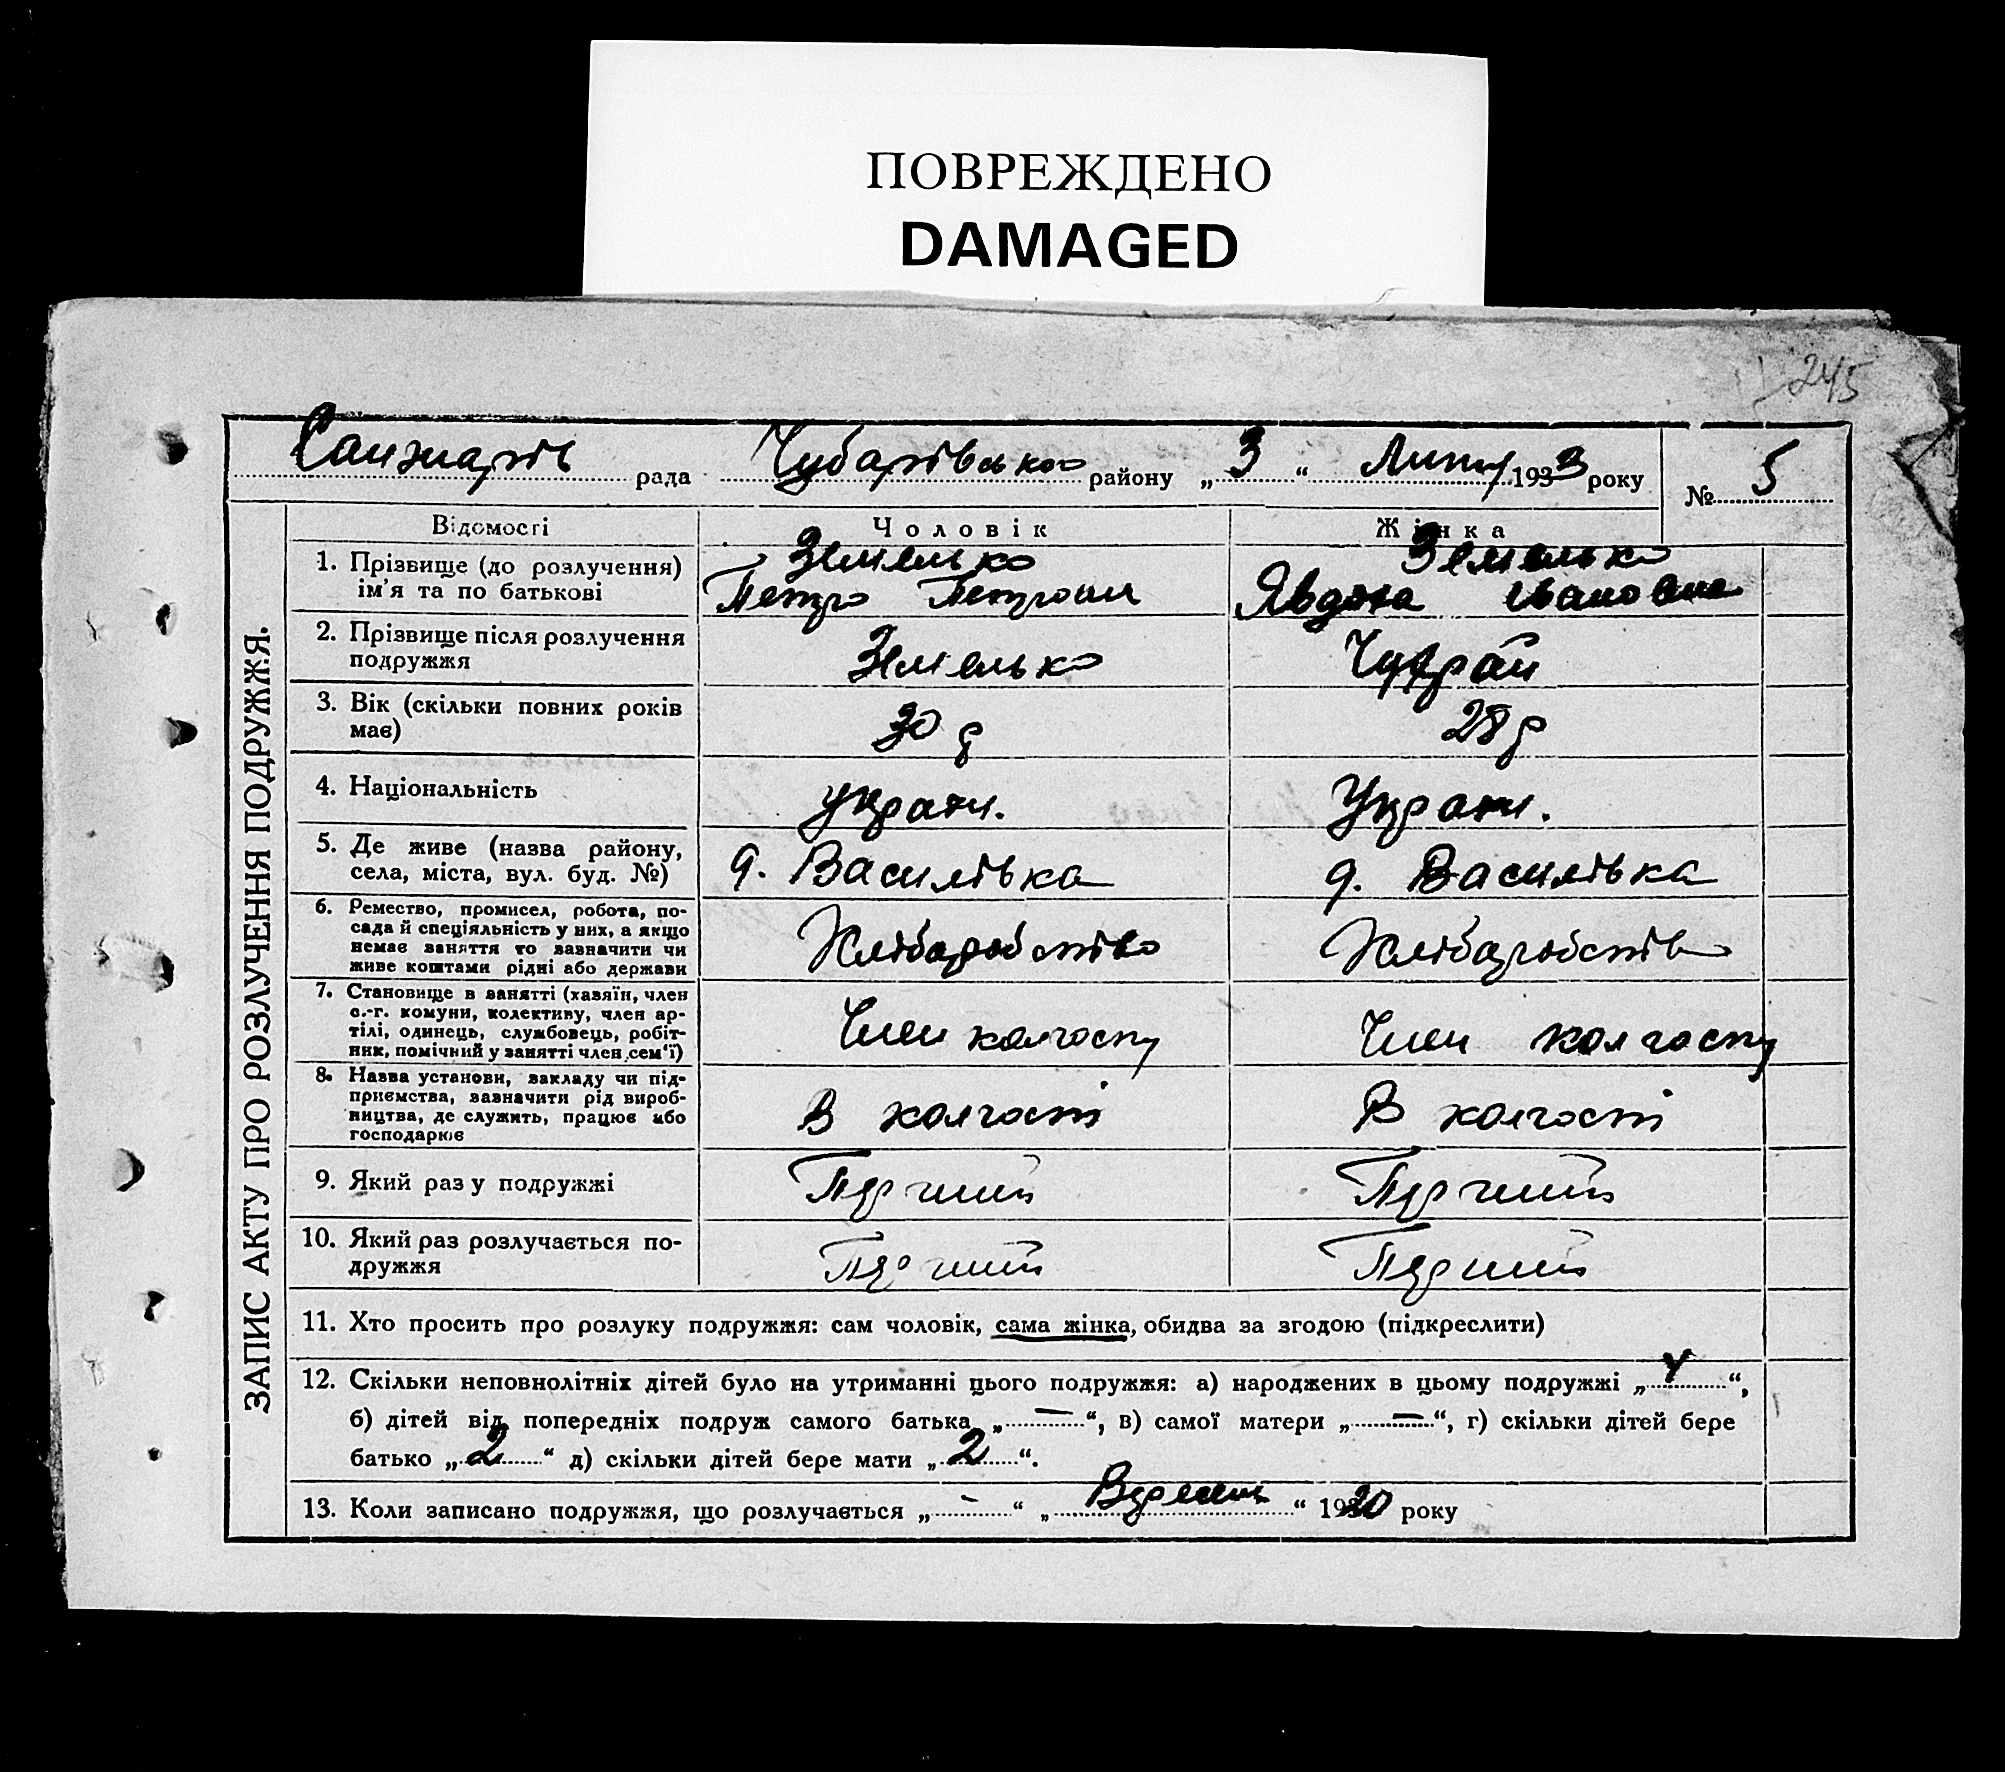 ПОВРЕЖДЕНО
DAMAGED
245
Санжарів рада Чубарівського району „3“ Липня 1933 року № 5
ЗАПИС АКТУ ПРО РОЗЛУЧЕННЯ ПОДРУЖЖЯ.
Відомості Чоловік Жінка
1. Прізвище (до розлучення) Земелько Земелько
ім'я та по батькові Петро Петрович Явдоха Івановна
2. Прізвище після розлучення
подружжя Земелько
3. Вік (скільки повних років
має) 30 р 28 р
4. Національність україн. Україн.
5. Де живе (назва району,
села, міста, вул. буд. №) с. Василівка с. Василівка
6. Ремество, промисел, робота, по-
сада й спеціяльність у них, а якщо
немає заняття то зазначити чи Хліборобство Хліборобство
живе коштами рідні або держави
7. Становище в занятті (хазяїн, член
с.-г. комуни, колективу, член ар-
тілі, одинець, службовець, робіт- Член колгоспу Член колгоспу
ник, помічний у занятті член сем'ї)
8. Назва установи, закладу чи під-
приємства, зазначити рід вироб-
ництва, де служить, працює або В колгоспі В колгоспі
господарює
9. Який раз у подружжі Перчий Перчий
10. Який раз розлучається по-
дружжя Перчий Перший
11. Хто просить про розлуку подружжя: сам чоловік, сама жінка, обидва за згодою (підкреслити)
12. Скільки неповнолітніх дітей було на утриманні цього подружжя: а) народжених в цьому подружжі „4“,
б) дітей від попередніх подруж самого батька „—“, в) самої матери „—“, г) скільки дітей бере
батько „2“ д) скільки дітей бере мати „2“.
13. Коли записано подружжя, що розлучається „-“ „“ 1920 року